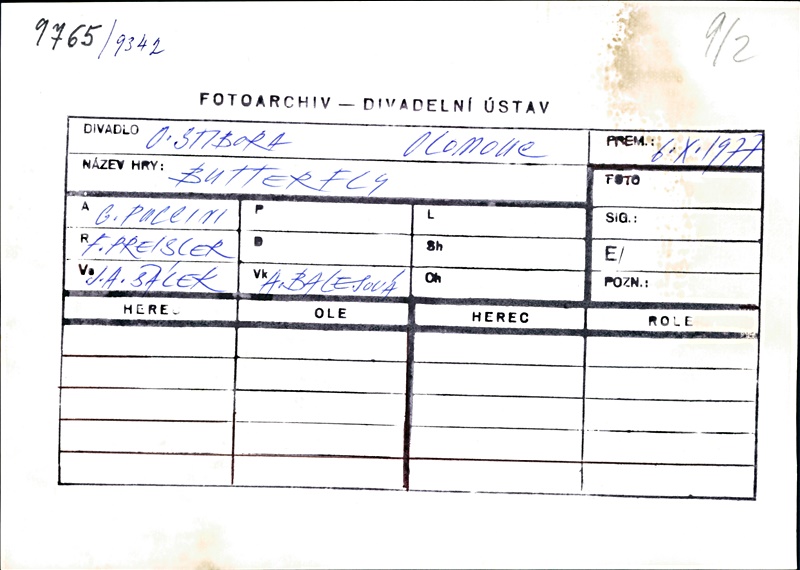 9765/9342
9/2
FOTOARCHIV — DIVADELNÍ ÚSTAV
DIVADLO O. STIBORA OLOMOUC
PREM.: 6.X.1977
NÁZEV HRY: BUTTERFLY
FOTO
A G. PUCCINI P L
SIG.:
R F. PREISLER D Sh
E/
Va J.A. ŠÁLEK Vk A. BALEJOVÁ Ch
POZN.:
HEREC OLE HEREC ROLE